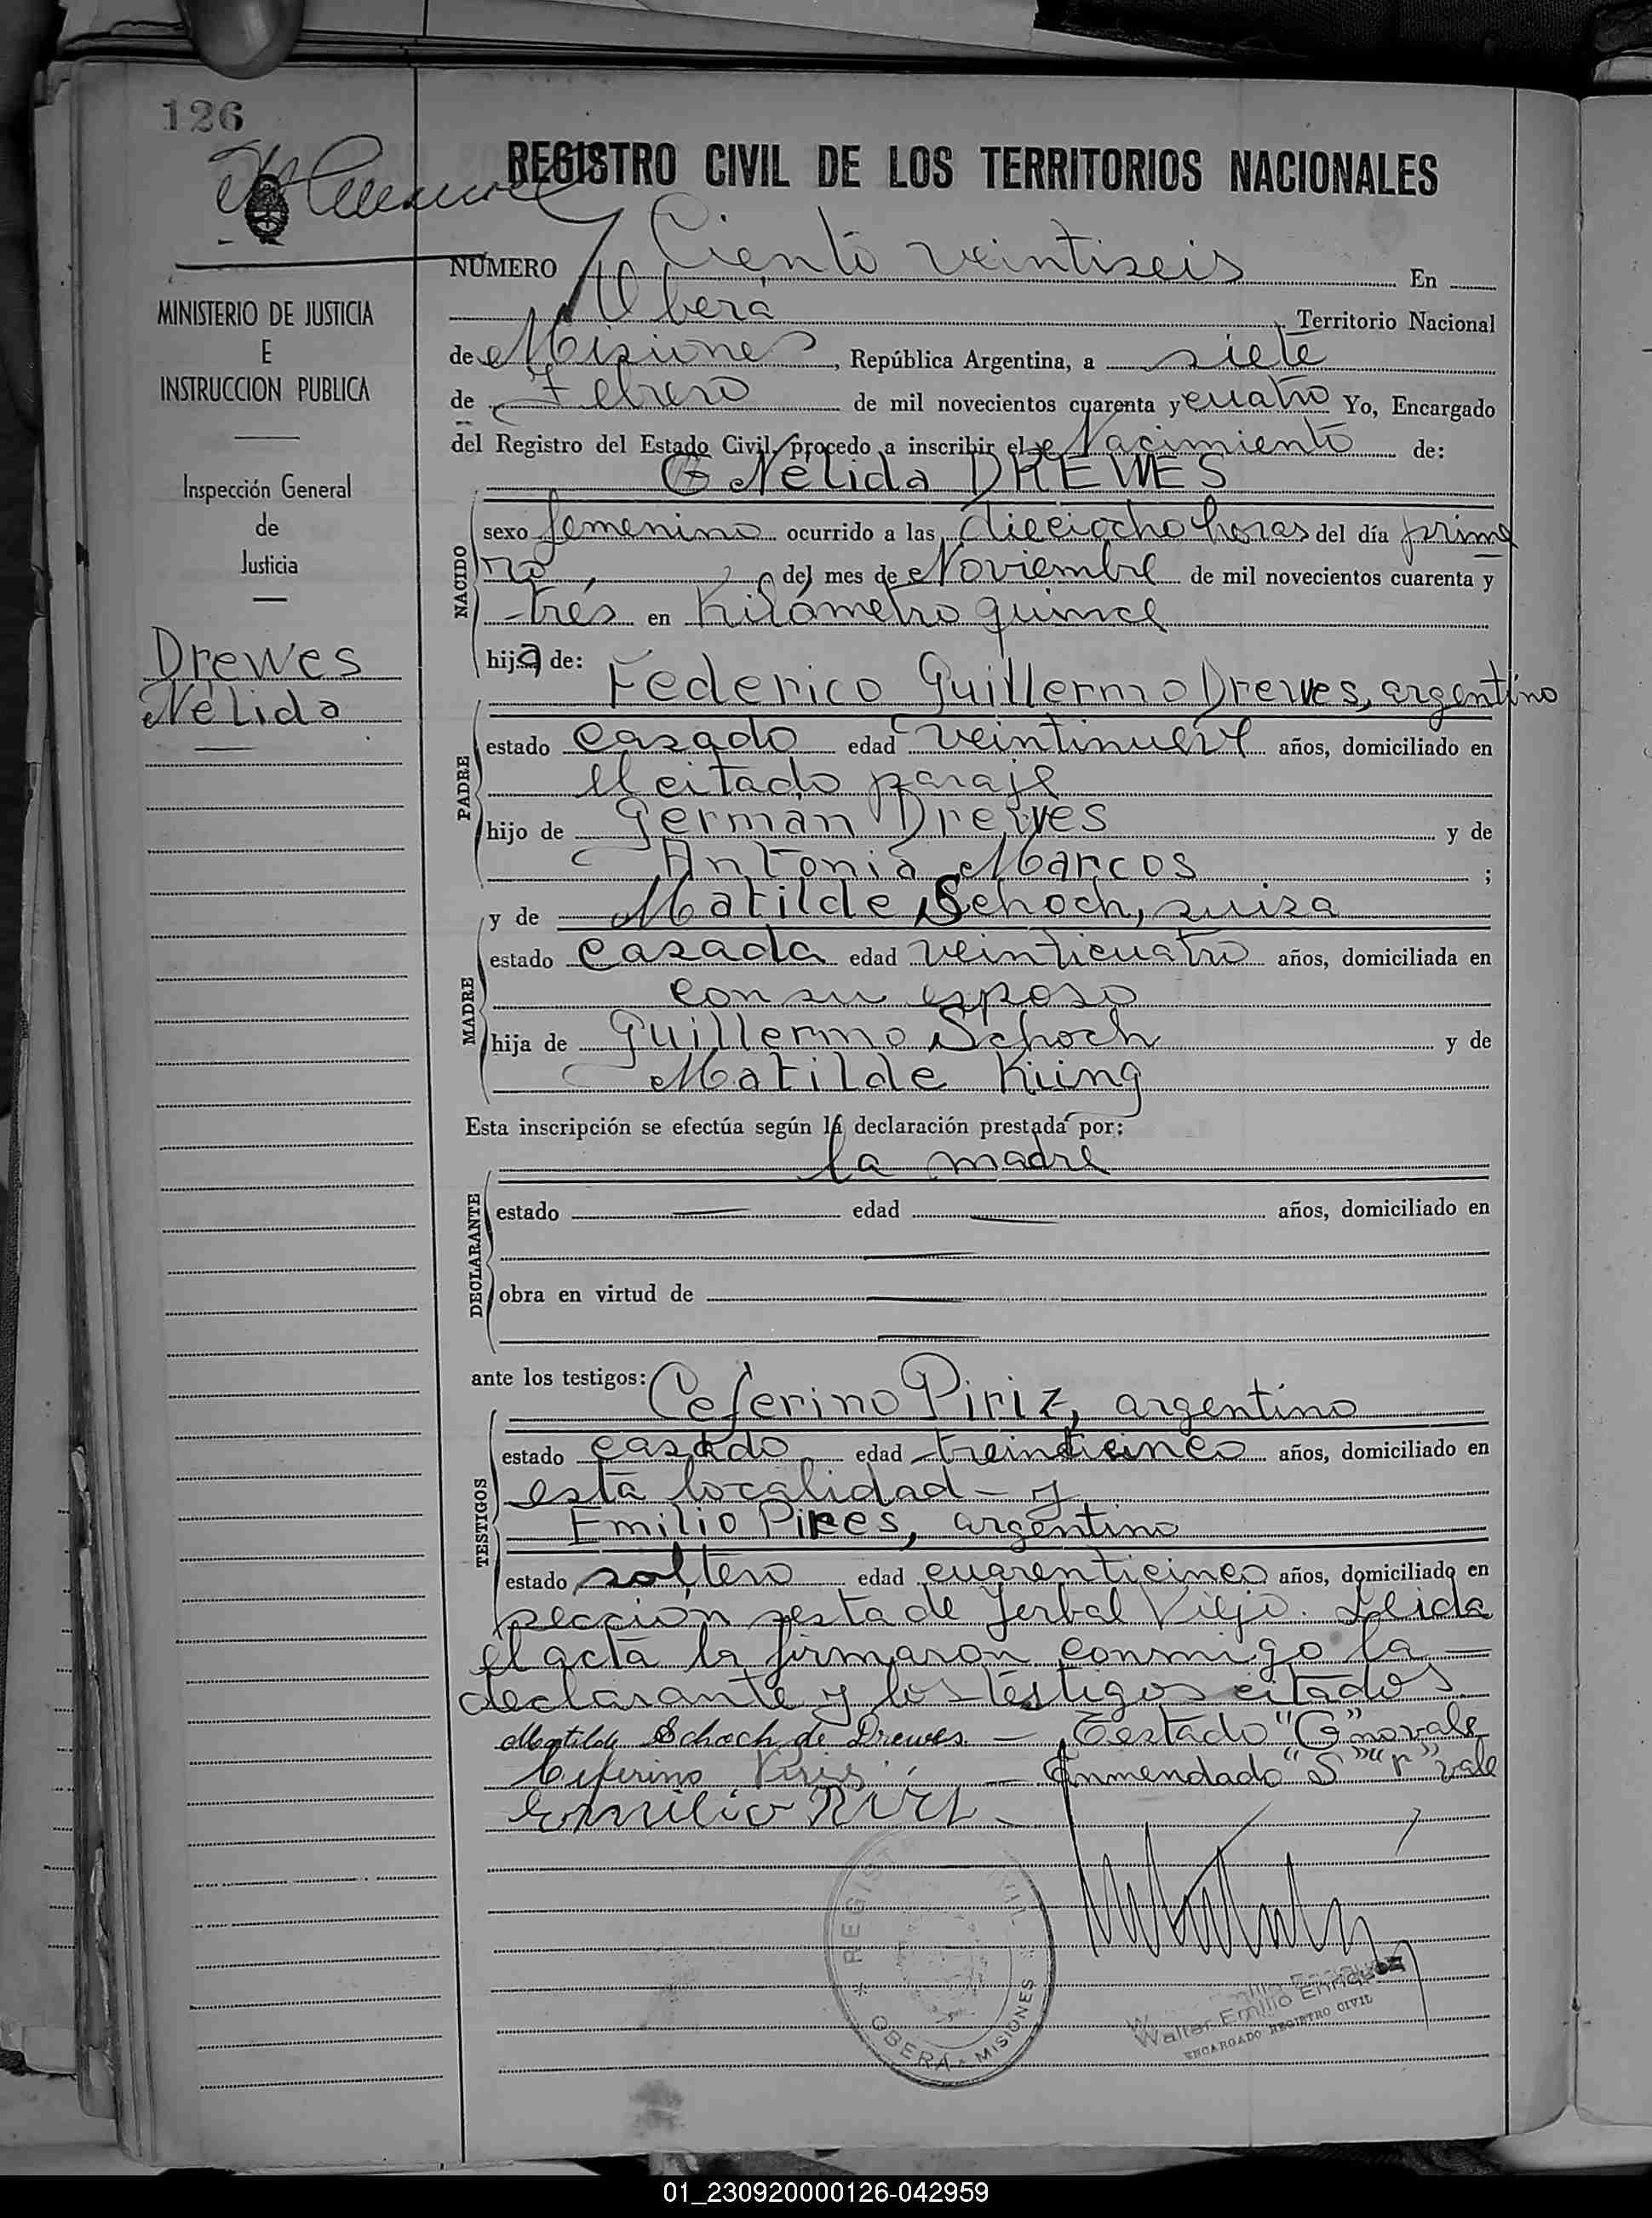 126
REGISTRO CIVIL DE LOS TERRITORIOS NACIONALES
MINISTERIO DE JUSTICIA
E
INSTRUCCION PUBLICA
Inspección General
de
Justicia
Drewes
Nélida
NÚMERO Ciento veintiseis En
Oberá Territorio Nacional
de Misiones, República Argentina, a siete
de Febrero de mil novecientos cuarenta y cuatro Yo, Encargado
del Registro del Estado Civil, procedo a inscribir el Nacimiento de:
G Nélida DREWES
NACIDO
sexo femenino ocurrido a las dieciocho horas del día prime
ro del mes de Noviembre de mil novecientos cuarenta y
tres en Kilómetro quince
hija de:
Federico Guillermo Drewes, argentino
PADRE
estado casado edad veintinueve años, domiciliado en
el citado paraje
hijo de Germán Drewes y de
Antonia Marcos ;
MADRE
y de Matilde Schoch, suiza
estado casada edad veinticuatro años, domiciliada en
con su esposo
hija de Guillermo Schoch y de
Matilde Küng
Esta inscripción se efectúa según la declaración prestada por:
la madre
DECLARANTE
estado edad años, domiciliado en
obra en virtud de
ante los testigos: Ceferino Piriz, argentino
TESTIGOS
estado casado edad treinticinco años, domiciliado en
esta localidad - y
Emilio Pires, argentino
estado soltero edad cuarenticinco años, domiciliado en
sección sesta de Yerbal Viejo. Leida
el acta la firmaron conmigo la
declarante y los testigos citados
Matilde Schoch de Drewes - Testado "G" no vale
Ceferino Piris - Enmendado "S" "r" vale
Emilio Pires
REGISTRO CIVIL
OBERA - MISIONES
Walter Emilio Enriquez
ENCARGADO REGISTRO CIVIL
01_230920000126-042959